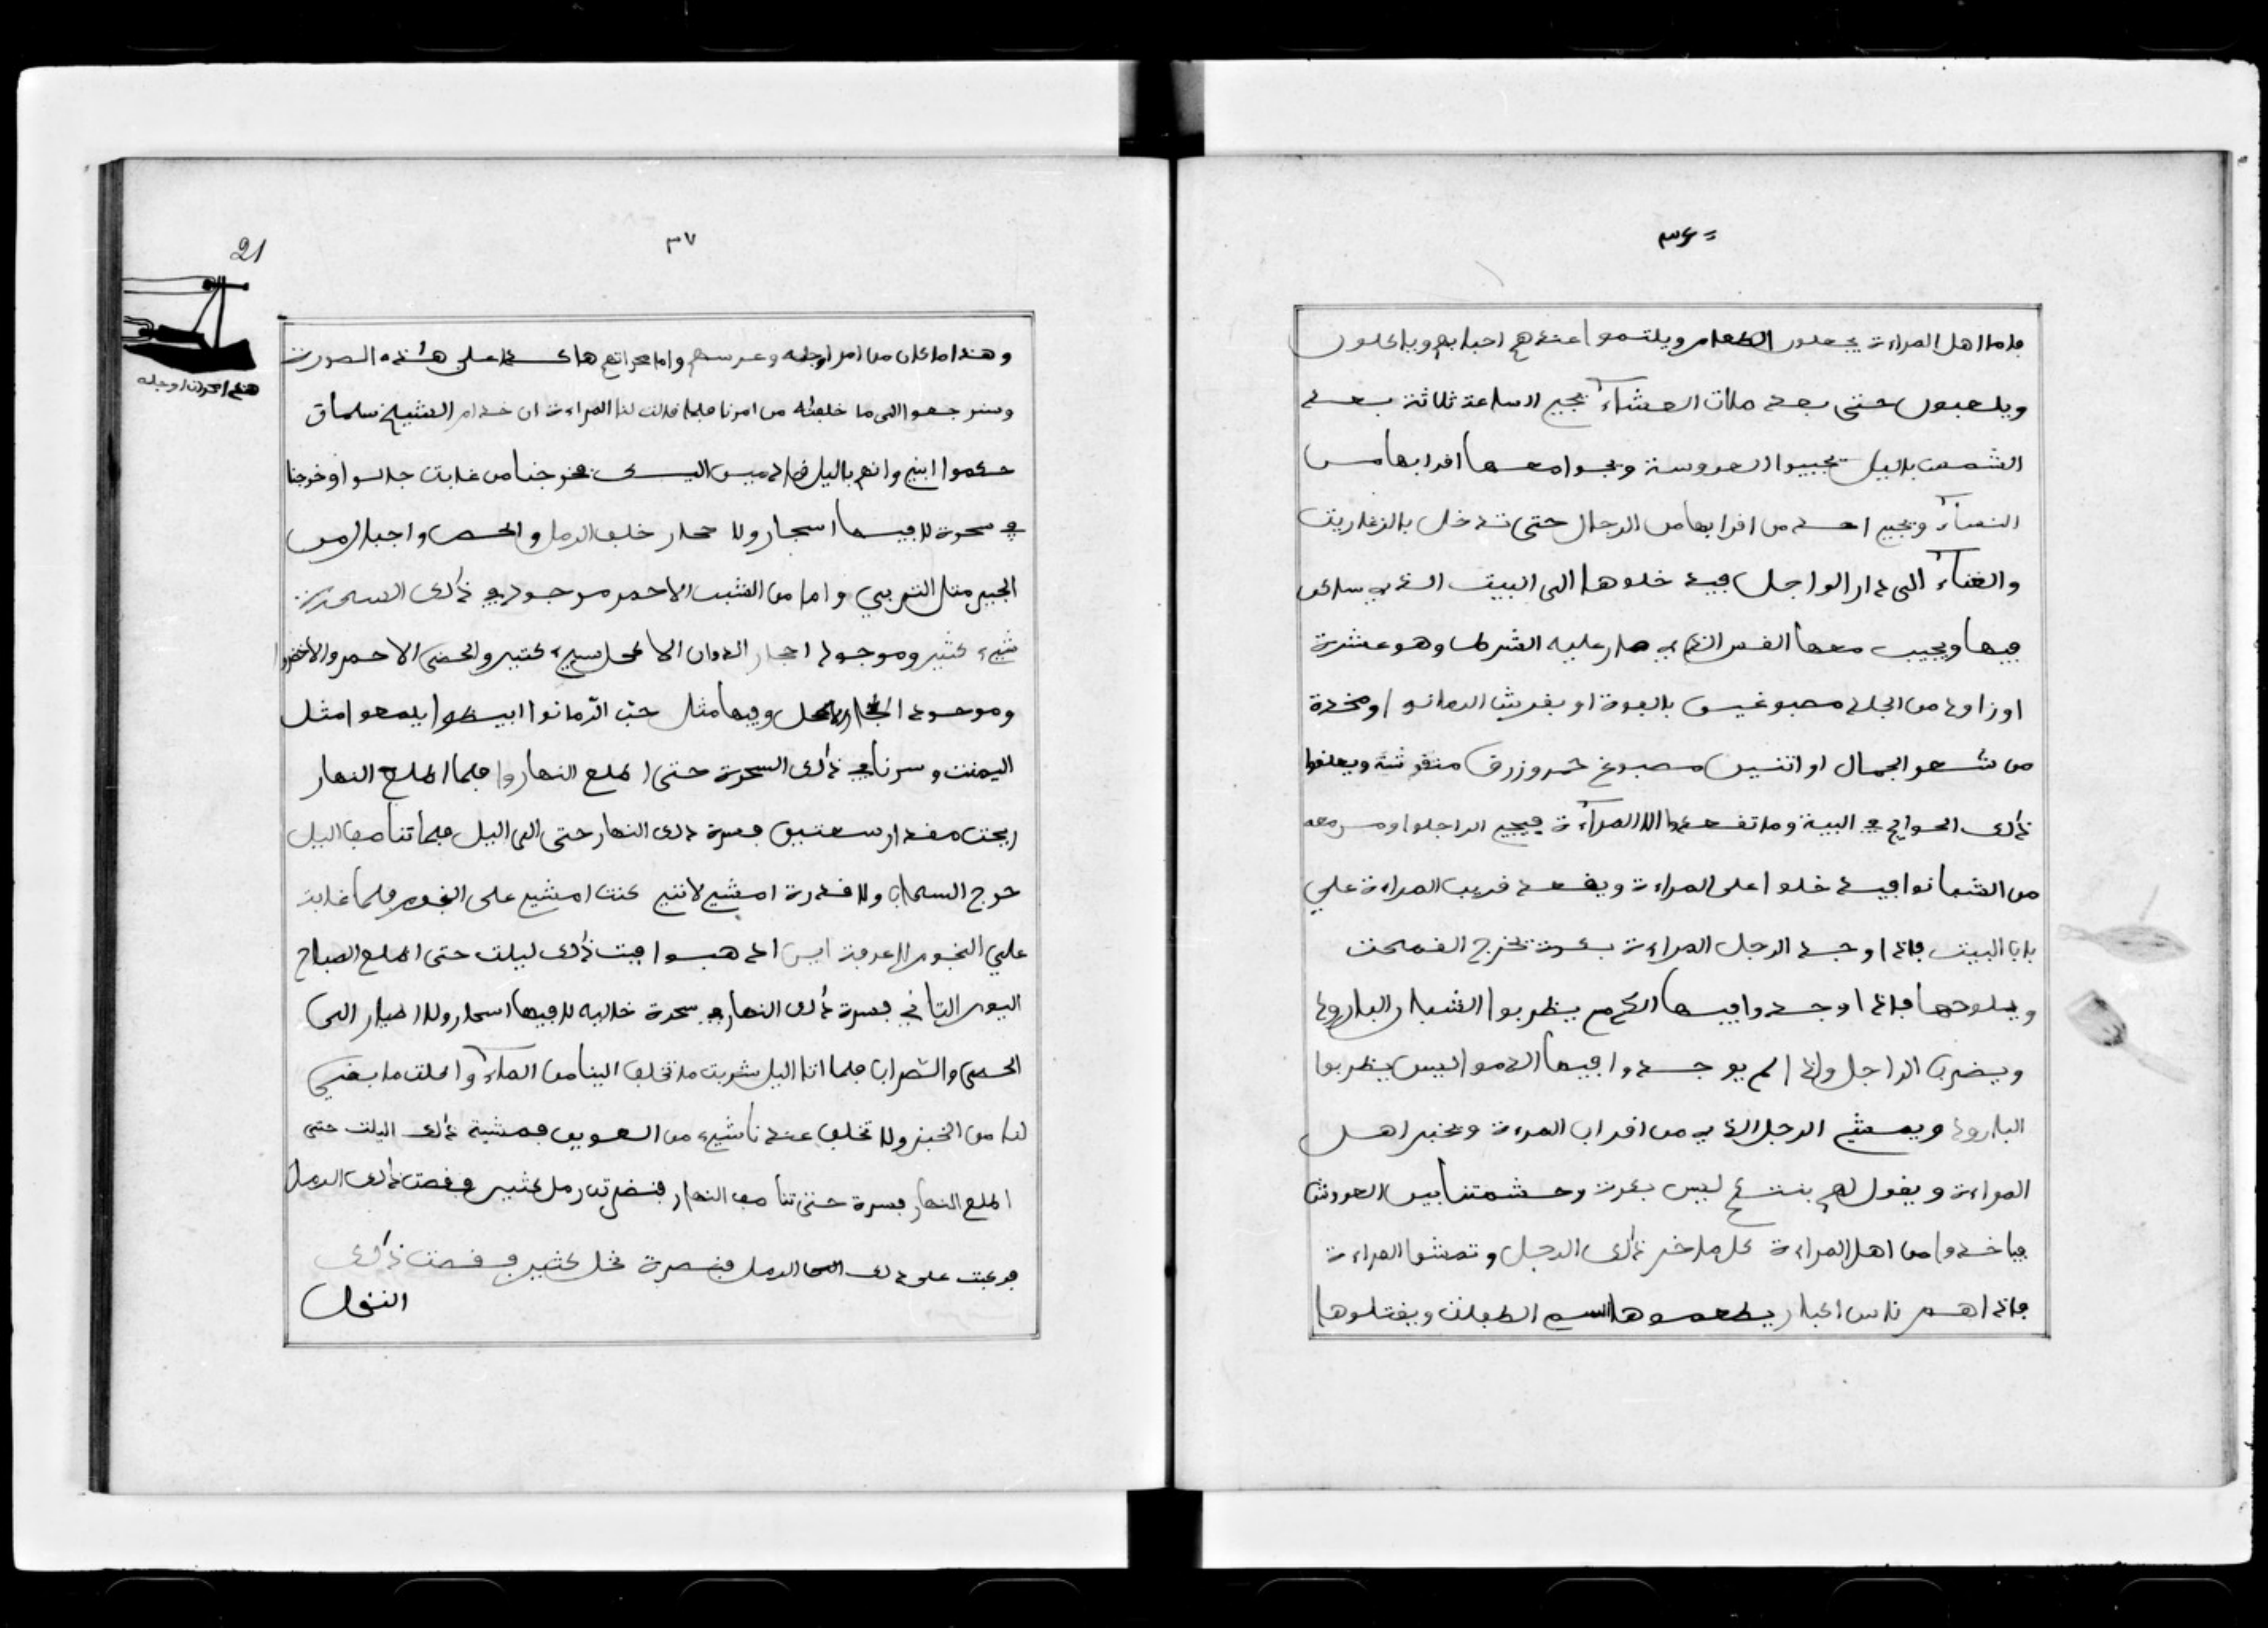 ٣٦
فاما اهل المراءة يجعلون الطعام ويلتموا عندهم احبابهم وياكلون
ويلعبون حتى بعد صلات العشاء تجيي الساعة ثلاثة بعد
الشمعت باليل تجيبوا العروسة ويجوا معها اقرابها من
النساء ويجيي احد من اقرابها من الرجال حتى تدخل بالزغاريت
والغناء الى دار الواجل فيدخلوها الى البيت الذي ساكن
فيها ويجيب معها الفس الذي صار عليه الشرط وهو عشرة
اوزاود من الجلد مصبوغين بالفوة او بقرش الرمانو او مخدة
من شعر الجمال او اتنين مصبوغ حمر وزرق منقوشة ويعلقوا
ذلك الحوايج في البية وما تقعد الا المراءة فيجي الراجلوا ومن معه
من الشبانوا فيدخلوا على المراءة ويقعد قريب المراءة على
بابا البيت فاذا وجد الرجل المراءة بكرة تخرج القمجت
ويلوحها فاذا وجدوا فيها الدم يظربوا الشبار البارود
ويضرب الراجل واذا لم يوجدوا فيها الدموا ليس يظربوا
البارود ويمشي الرجل الذي من اقراب المرءة ويخبر اهل
المراءة ويقول لهم بنتكم ليس بكرة وحشمتنا بين العروش
فياخدوا من اهل المراءة كل ما خسر ذلك الرجل وتمشوا المراءة
فاذا هم ناس اكبار يطعموها السم الطفلت ويقتلوها
٣٧
21
هذه احرات اوجله
وهذا ما كان من امر اوجله وعرسهم واما محراتهم هاكدا على هذه الصورت
وسنرجعوا الى ما خلفنه من امرنا فلما قالت لنا المراءة ان خدام الشيخ سلماق
حكموا ابنيي وانهم باليل فخرجنا من غابت جالوا وخرجنا
في سحرة لا فيها اسجار ولا حجار خلف الرمل والحصى واجبال من
الجبير متل التربي واما من الشب الاحمر موجود في ذلك السحرت
شيء كثير وموجود احجار الاكحل سيء كتير والحضى الاحمر والاخضر
وموجود الحجار الاكحل وفيها مثل حب الرمانوا ابيظوا يلمعوا مثل
اليمنت وسرنا في ذلك السحرة حتى اطلع النهاروا فلما اطلع النهار
اريحت مقدار سعتين فسرة ذلك النهار حتى الى اليل فلما تناصف اليل
خرج السحاب ولا قدرة امشي لانني كنت امشي على النجوم فلما غابت
علي النجوم لا عرفة اين اذهبوا فبت ذلك ليلت حتى اطلع الصباح
اليوم التاني فسرة ذلك النهار في سحرة خاليه لا فيها اسجار ولا اطيار الى
الحصى والتراب فلما اتا اليل شربت ما تخلف الينا من الماء واكلت ما بقي
لنا من الخبز ولا تخلف عندنا شيء من العوين فمشية ذلك اليلت حتى
اطلع النهار فسرة حتى تناصف النهار فنضرت رمل كثير فقصت ذلك الرمل
فركبت على ذلك الرمل فنضرة نخل كثير فقصت ذلك
النخل